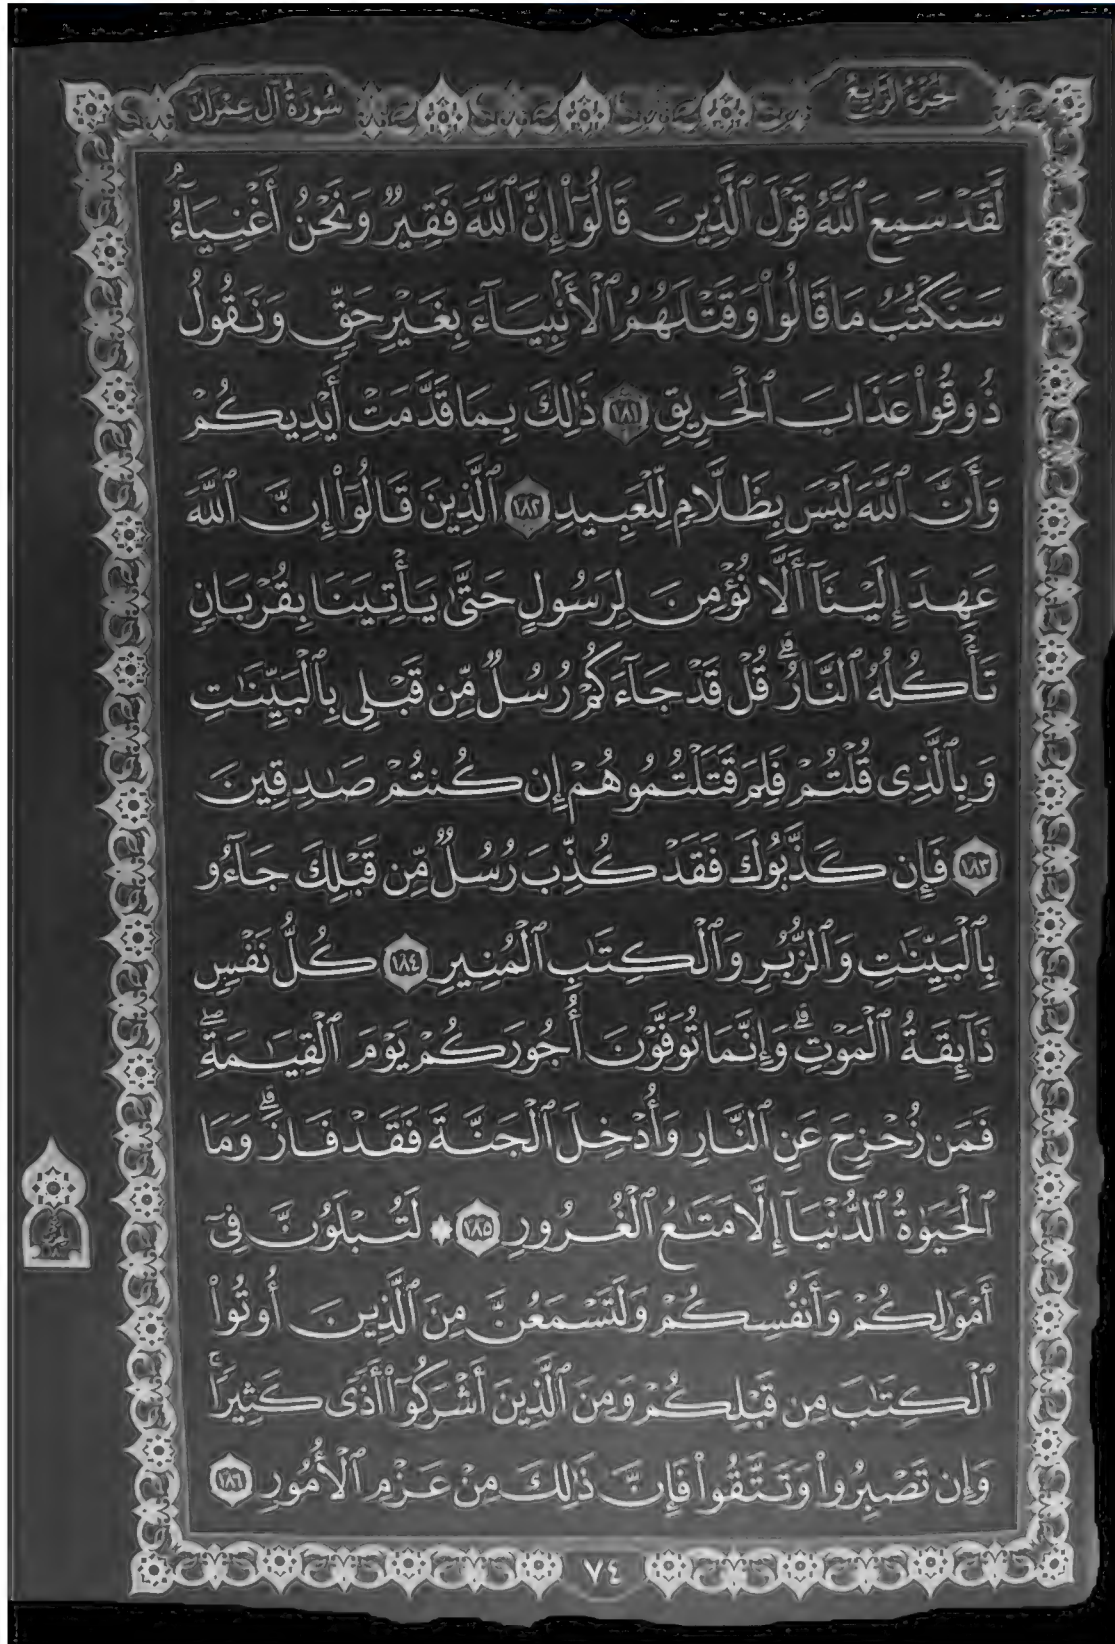 الجزء الرابع
سورة آل عمران
لَّقَدْ سَمِعَ ٱللَّهُ قَوْلَ ٱلَّذِينَ قَالُوٓا۟ إِنَّ ٱللَّهَ فَقِيرٌ وَنَحْنُ أَغْنِيَآءُ
سَنَكْتُبُ مَا قَالُوا۟ وَقَتْلَهُمُ ٱلْأَنۢبِيَآءَ بِغَيْرِ حَقٍّ وَنَقُولُ
ذُوقُوا۟ عَذَابَ ٱلْحَرِيقِ ١٨١ ذَٰلِكَ بِمَا قَدَّمَتْ أَيْدِيكُمْ
وَأَنَّ ٱللَّهَ لَيْسَ بِظَلَّامٍ لِّلْعَبِيدِ ١٨٢ ٱلَّذِينَ قَالُوٓا۟ إِنَّ ٱللَّهَ
عَهِدَ إِلَيْنَآ أَلَّا نُؤْمِنَ لِرَسُولٍ حَتَّىٰ يَأْتِيَنَا بِقُرْبَانٍ
تَأْكُلُهُ ٱلنَّارُ ۗ قُلْ قَدْ جَآءَكُمْ رُسُلٌ مِّن قَبْلِى بِٱلْبَيِّنَٰتِ
وَبِٱلَّذِى قُلْتُمْ فَلِمَ قَتَلْتُمُوهُمْ إِن كُنتُمْ صَٰدِقِينَ
١٨٣ فَإِن كَذَّبُوكَ فَقَدْ كُذِّبَ رُسُلٌ مِّن قَبْلِكَ جَآءُو
بِٱلْبَيِّنَٰتِ وَٱلزُّبُرِ وَٱلْكِتَٰبِ ٱلْمُنِيرِ ١٨٤ كُلُّ نَفْسٍ
ذَآئِقَةُ ٱلْمَوْتِ ۗ وَإِنَّمَا تُوَفَّوْنَ أُجُورَكُمْ يَوْمَ ٱلْقِيَٰمَةِ ۖ
فَمَن زُحْزِحَ عَنِ ٱلنَّارِ وَأُدْخِلَ ٱلْجَنَّةَ فَقَدْ فَازَ ۗ وَمَا
ٱلْحَيَوٰةُ ٱلدُّنْيَآ إِلَّا مَتَٰعُ ٱلْغُرُورِ ١٨٥ ۞ لَتُبْلَوُنَّ فِىٓ
أَمْوَٰلِكُمْ وَأَنفُسِكُمْ وَلَتَسْمَعُنَّ مِنَ ٱلَّذِينَ أُوتُوا۟
ٱلْكِتَٰبَ مِن قَبْلِكُمْ وَمِنَ ٱلَّذِينَ أَشْرَكُوٓا۟ أَذًى كَثِيرًا ۚ
وَإِن تَصْبِرُوا۟ وَتَتَّقُوا۟ فَإِنَّ ذَٰلِكَ مِنْ عَزْمِ ٱلْأُمُورِ ١٨٦
٧٤